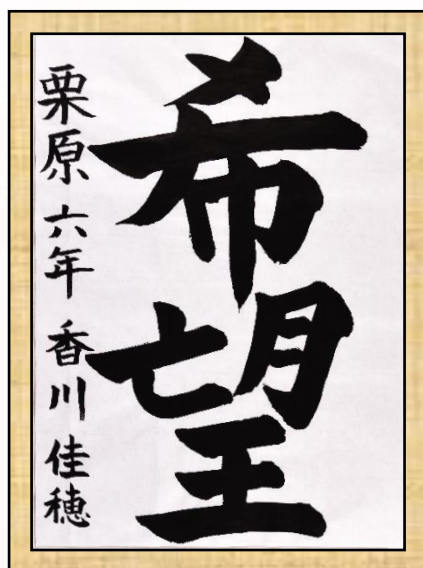 希望
栗原 六年 香川 佳穂